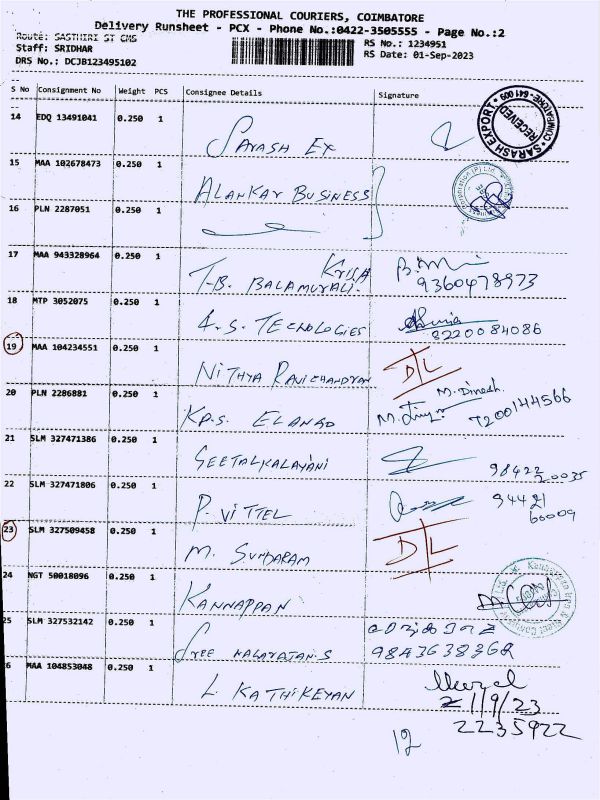 THE PROFESSIONAL COURIERS, COIMBATORE
Delivery Runsheet - PCX - Phone No.:0422-3505555 - Page No.:2
Route: SASTHIRI ST CMS
Staff: SRIDHAR
DRS No.: DCJB123495102
RS No.: 1234951
RS Date: 01-Sep-2023
S No Consignment No Weight PCS Consignee Details Signature
14 EDQ 13491041 0.250 1
SARASH EX
SARASH EXPORT
RECEIVED
COIMBATORE-641 009
15 MAA 102678473 0.250 1
ALANKAR BUSINESS
16 PLN 2287051 0.250 1
17 MAA 943328964 0.250 1
T-B. BALAMURALI KRISA
9360478973
18 MTP 3052075 0.250 1
A.S. TECNOLOGIES
8220084086
19 MAA 104234551 0.250 1
NITHYA RAVICHANDRAN D/L
20 PLN 2286881 0.250 1
KP.S. ELANGO M. Dinesh
7200144566
21 SLM 327471386 0.250 1
GEETALKALAYANI 98422 20035
22 SLM 327471806 0.250 1
P. VITTEL 94421 60009
23 SLM 327509458 0.250 1
M. SUNDARAM D/L
24 NGT 50018096 0.250 1
KANNAPPAN
25 SLM 327532142 0.250 1
SREE NALAYATAN.S 9843638362
26 MAA 104853048 0.250 1
L KATHIKEYAN
1/9/23
2235922
12